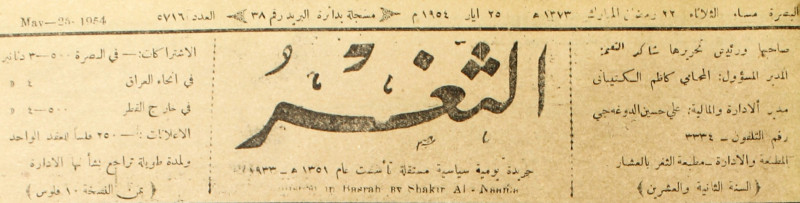 البصرة مساء الثلاثاء ٢٢ رمضان المبارك ١٣٧٣ هـ ٢٥ ايار ١٩٥٤ م مسجلة بدائرة البريد رقم ٣٨ العدد ٥٧١٦ May—25—1954
صاحبها ورئيس تحريرها شاكر النعمة
المدير المسؤول: المحامي كاظم الكنيباني
مدير الادارة والمالية: علي حسين الدوغجي
رقم التلفون ــ ٣٣٣٤
المطبعة والادارة ــ مطبعة الثغر بالعشار
( السنة الثانية والعشرين )
الثغر
جريدة يومية سياسية مستقلة تأسست عام ١٣٥١ هـ ــ ١٩٣٣
in Basrah By Shakir Al-Naama
الاشتراكات: — في البصرة ٥٠٠—٣ دنانير
في انحاء العراق ٤ »
في خارج القطر ٥٠٠—٤ »
الاعلانات: — ٢٥٠ فلساً للعقد الواحد
ولمدة طويلة تراجع بشأنها الادارة
( ثمن النسخة ١٠ فلوس )